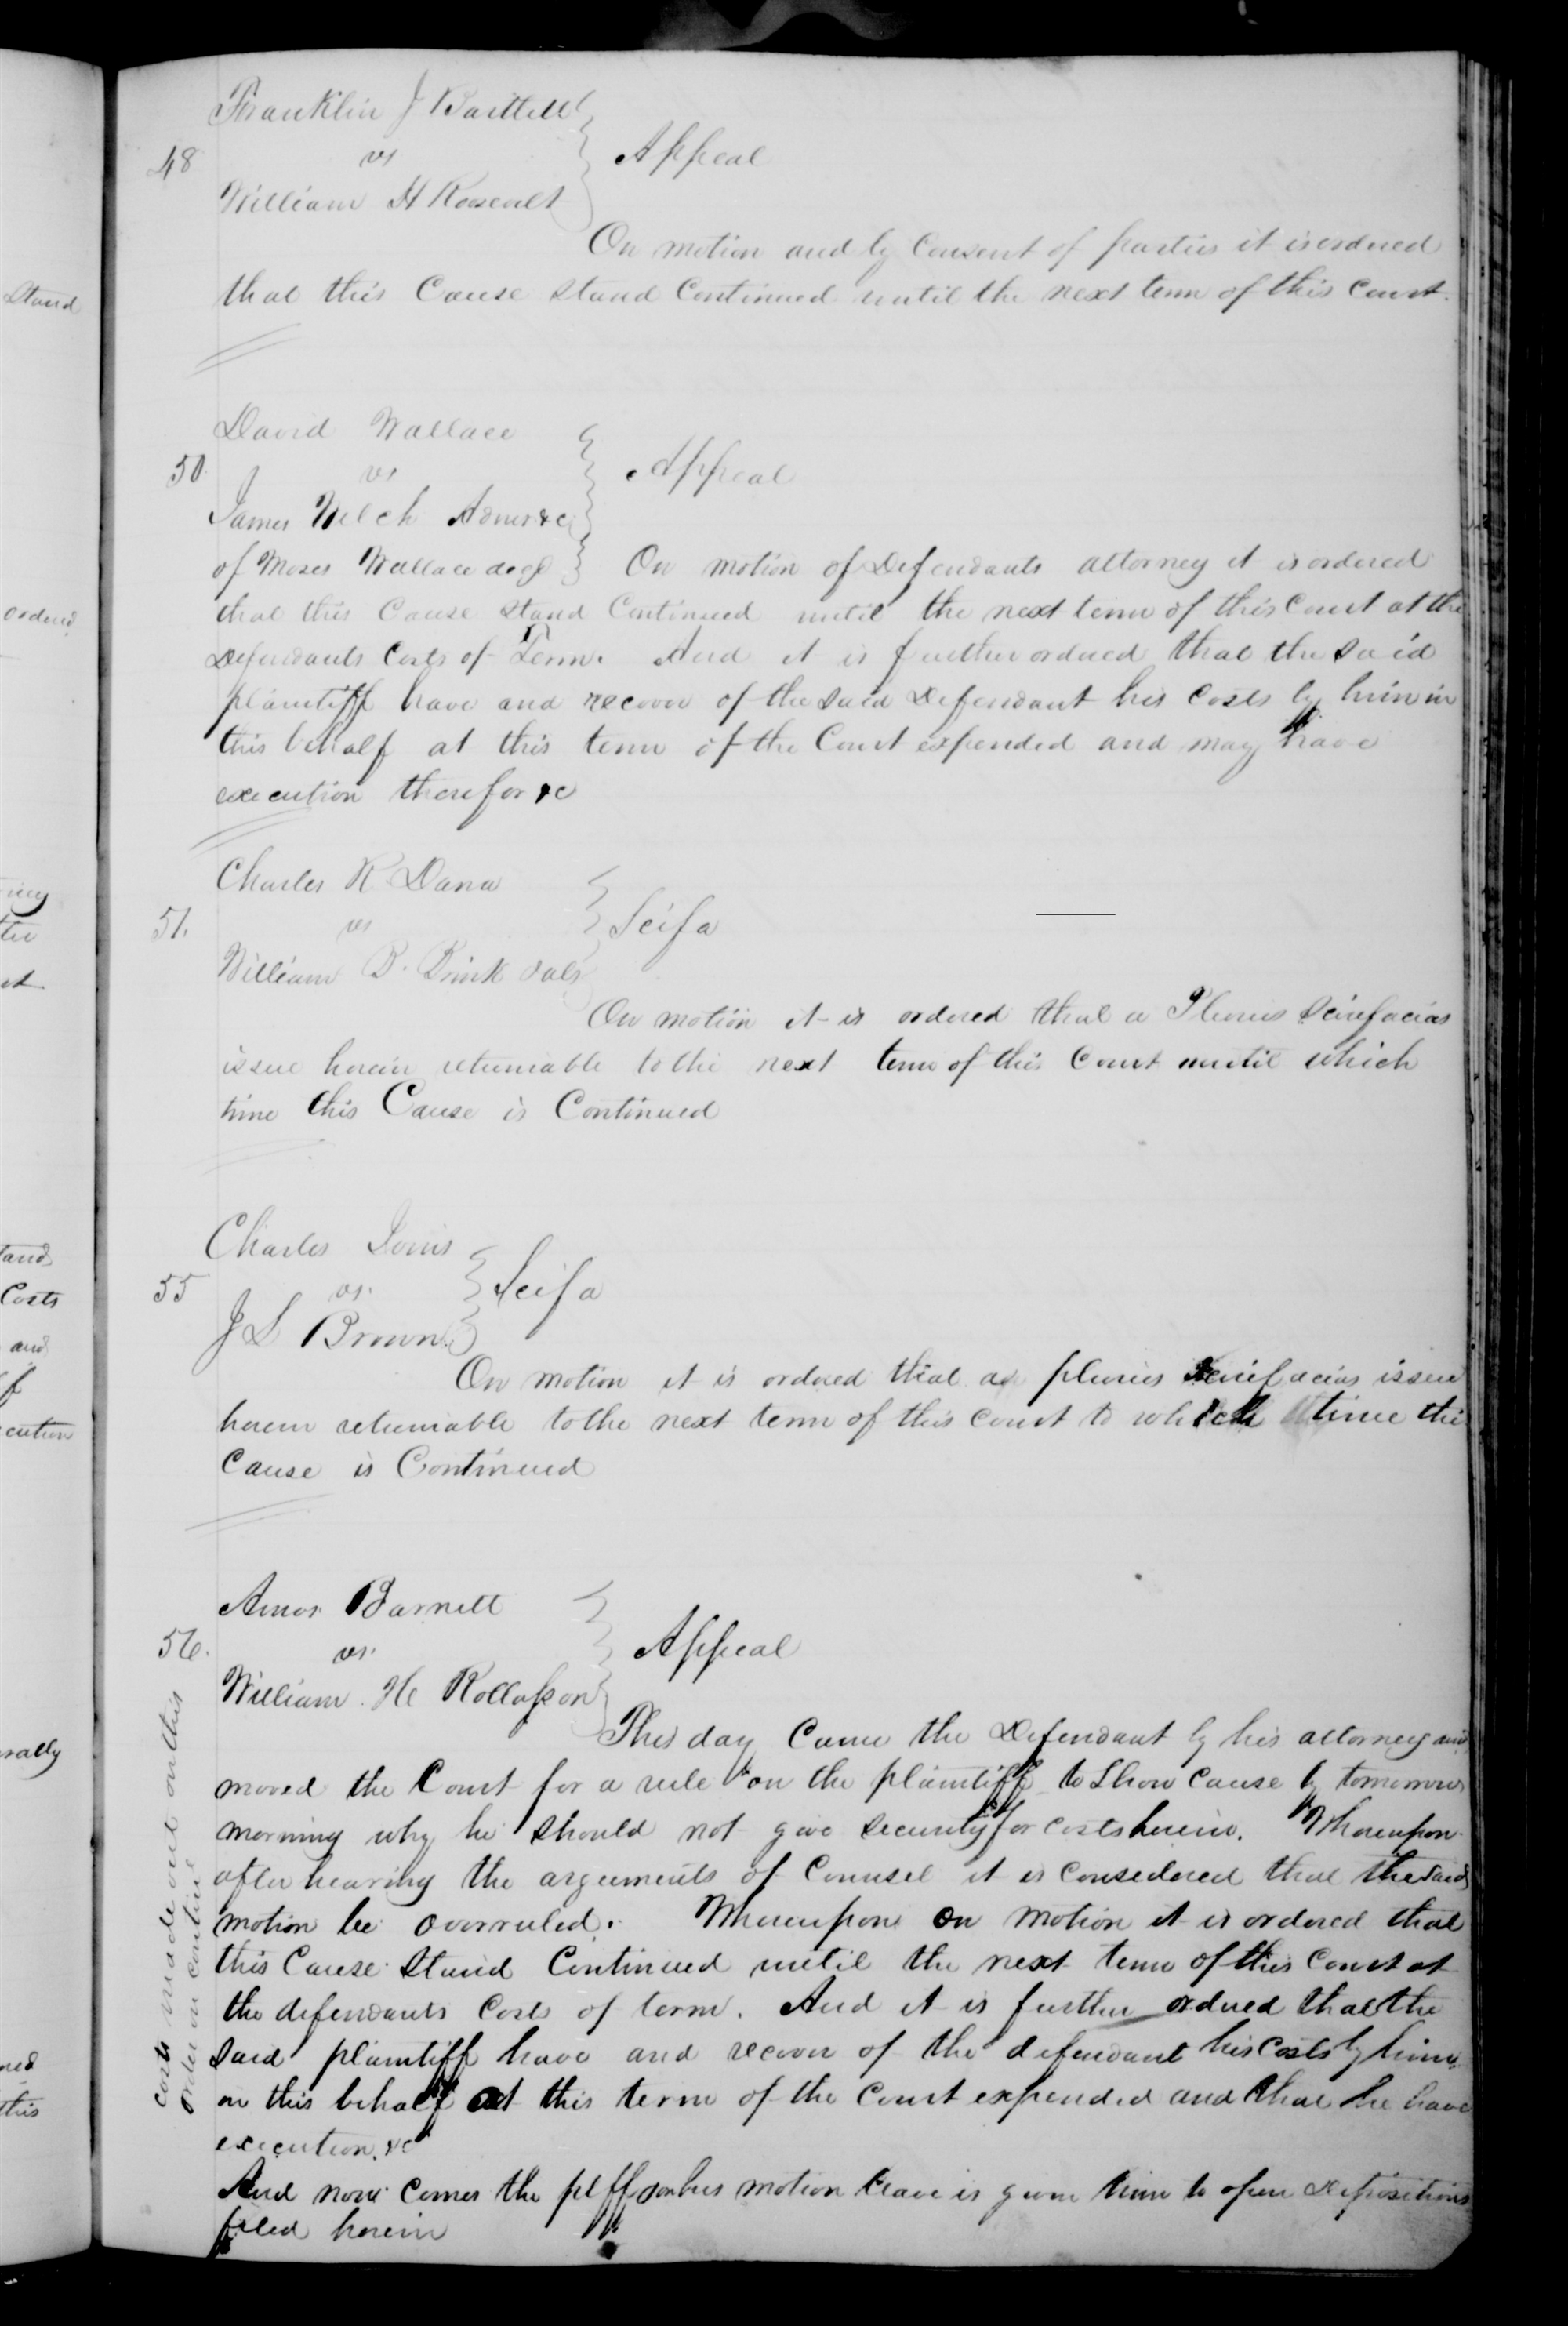 Franklin J Bartlett
48 vs Appeal
William H Roosevelt
On motion and by Consent of parties it is ordered
that this Cause stand Continued until the next term of this Court.
David Wallace
50. vs Appeal
James Welch Admr &c
of Moses Wallace decd On motion of Defendants attorney it is ordered
that this Cause stand Continued until the next term of this Court at the
Defendants Costs of Term. And it is further ordered that the said
plaintiff have and recover of the said Defendant his Costs by him in
this behalf at this term of the Court expended and may have
execution therefor &c
Charles R Dana
51. vs Scifa
William B. Brink
On motion it is ordered that a Plurius Scirefacias
issue herein returnable to the next term of this Court until which
time this Cause is Continued
Charles
55 vs. Scifa
J L Brown
On motion it is ordered that a plurius scirefacias issue
herein returnable to the next term of this Court to which time this
Cause is Continued
Amos Barnett
56. vs.
Appeal
William H Rollosson
This day Came the Defendant by his attorney and
moved the Court for a rule on the plaintiff to Show Cause by tomorrow
morning why he should not give security for costs herein. Whereupon
after hearing the arguments of Counsel it is Considered that the said
motion be overruled. Whereupon on motion it is ordered that
this Cause Stand Continued until the next term of this Court at
the defendants Costs of term. And it is further ordered that the
said plaintiff have and recover of the defendant his Costs by him
on this behalf at this term of the Court expended and that he have
execution. &c
And now comes the plff on his motion leave is given him to open Depositions
filed herein
costs made out on this
order on